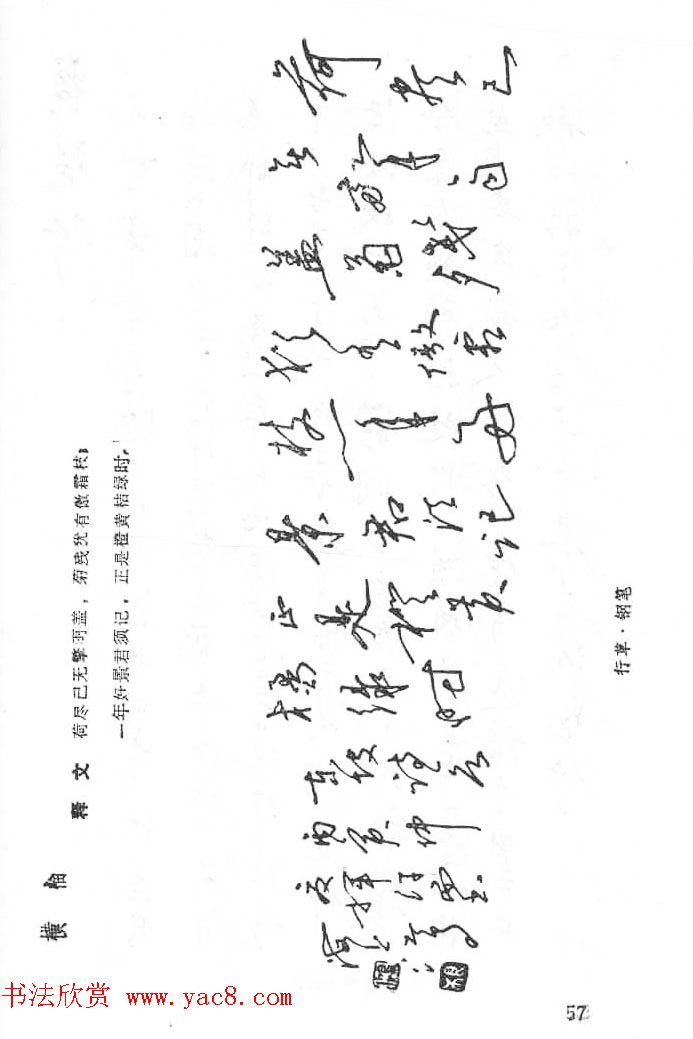 横 幅
释 文 荷尽已无擎雨盖，菊残犹有傲霜枝；
一年好景君须记，正是橙黄桔绿时。
荷尽已
无擎雨
盖菊残
犹有傲霜
枝一年好
景君须记
正是橙黄
橘绿时
东坡诗
丙寅仲
夏挥汗
行草·钢笔
57
书法欣赏 www.yac8.com